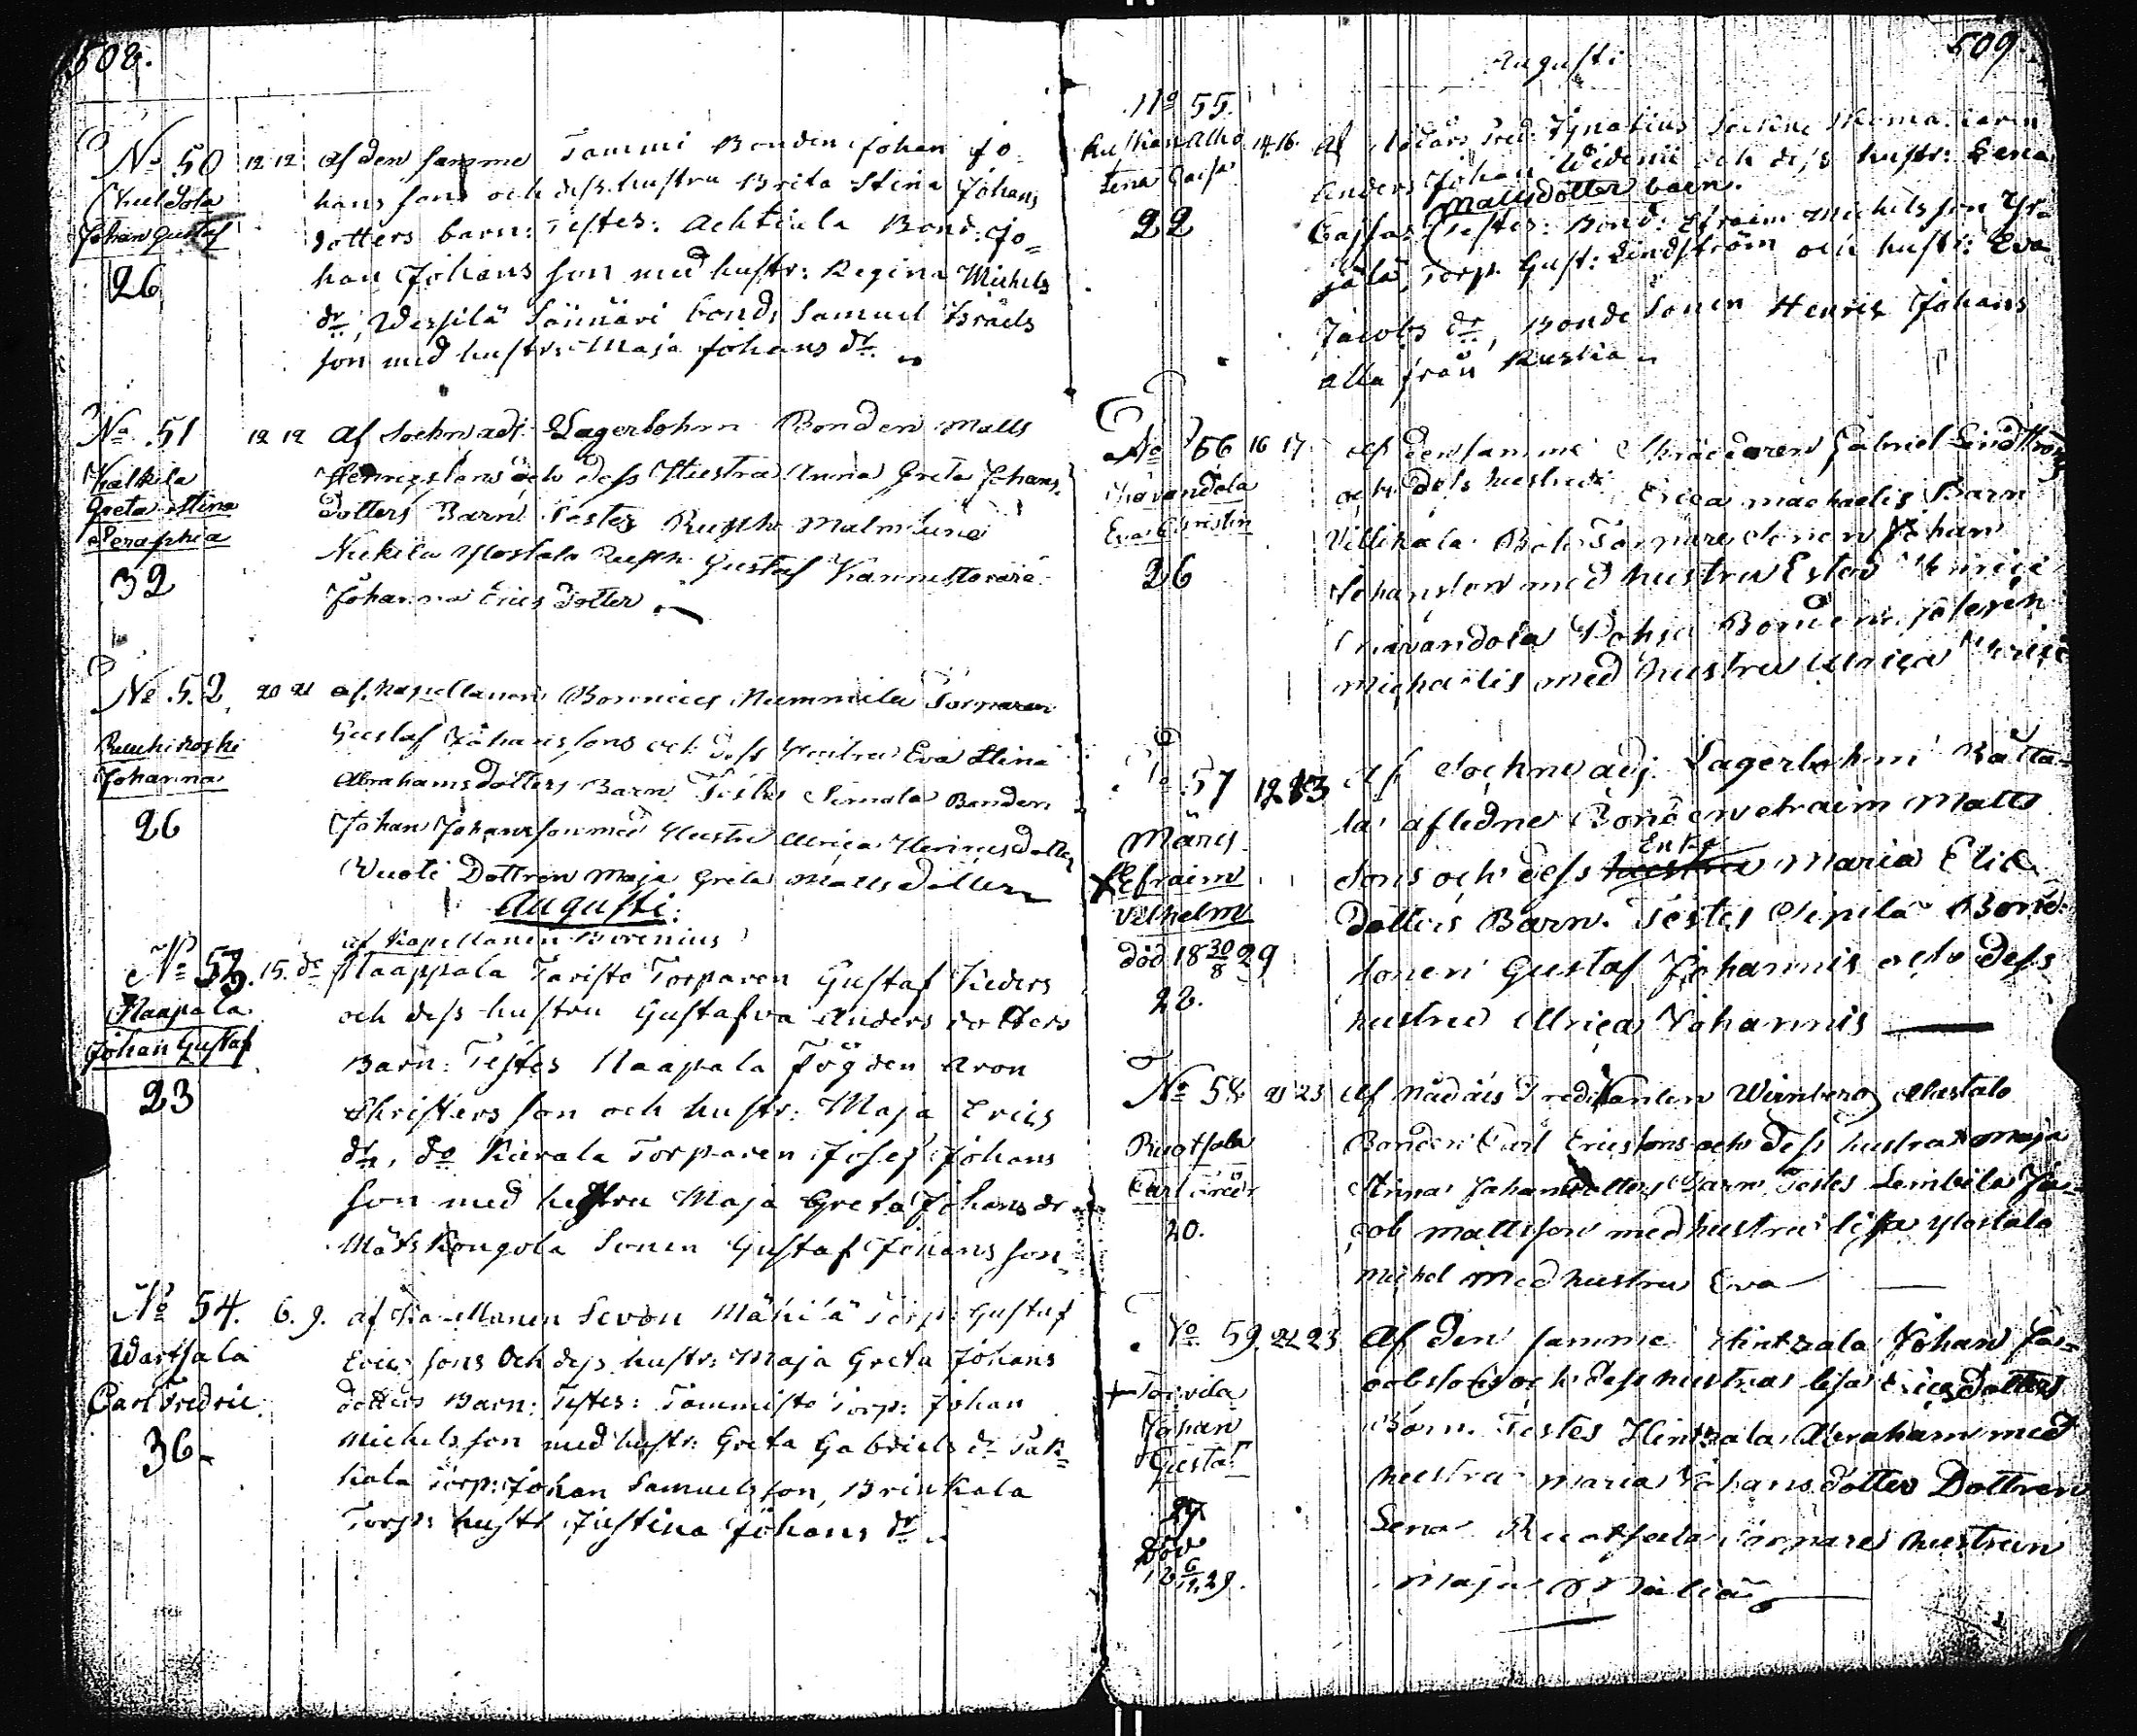 508.
No 50 12 12 af den samme Tammi Bonden Johan Jo
Huldola hans sons och dess hustru Brita Stina Johans
Johan Gustaf dotters barn: Testes: Achtiala Bond: Jo=
26 han Johans son med hustr: Regina Michels
dr, Wessilä Säünäri bond: Samuel Israels
son med hustr: Maja Johans dr.
No 51 12 12 Af Sochn adj. Lagerbohm Bonden Matts
Kalkila Henrigssons och dess Hustru Anna Greta Johans
Greta Stina dotters Barn Testes Rusth Malmlund
Seraphia Nickila Ylostalo Rusth Gustaf
32 Johanna Erics dotter
No 52 20 21 af Kapellanen Borenius Nummila Torparen
Ruuhikoski Gustaf Johanssons och Dess Hustru Eva Stina
Johanna Abrahamsdotters Barn Testes Simola Bonden
26 Johan Johansson med Hustru Ulrica Henricsdotter
Dottren Maja Greta Mattsdotter
Augusti.
af Kapellanen Borenius
No 53. 15. do Naappala Taristo Torparen Gustaf
Naapala och dess hustru Gustafva Anders dotters
Johan Gustaf Barn: Testes Naapala Fögden Aron
23 Christers son och hustr: Maja Erics
dtr, do Kierala Torparen Josef Johans
son med hustru Maja Greta Johans dr
Mäts Kongola Sonen Gustaf Johans son
No 54. 6. 9. af Kapellanen Sevon Mäkilä Torp: Gustaf
Wartsala Erics sons Och dess hustr: Maja Greta Johans
Carl Fredric dotters Barn: Testes: Tammisto Torp: Johan
36 Michels son med hustr: Greta Gabriels dr Pak=
kala Torp: Johan Samuels son, Brinkala
Torp: hustr Justina Johans dr
Augusti 509.
No 55.
14. 16. Af Nådårs Pred: Ignatius
Lena Cajsa Anders Johan Widenii och dess hustr: Lena
Mattsdotter barn.
22 Cajsas Testes: Bond: Efraim Michels son Yrö
jälä, Torp. Gust: Lindström och hustr: Eva
Jacobs dr, Bonde Sonen Henric Johans
alla från Ruskia
No 56 16 17 af densamme Skräddaren Gabriel Lindström
och dess hustru Erica Michaelis Barn
Eva Christin Villikala Torpare Sonen Johan
26 Johansson med hustru Ester Henrici
Pohja Bonden
Michaelis med hustru Ulrica
No 57 12 13 Af Sochne adj. Lagerbohm Rätta=
Märij la afledne Bonden Efraim Matts
Enka
Efraim Sons och dess hustru Maria Elic
Vilhelm dotters Barn. Testes Sipilä Bond
död 18 30/8 29 sonen Gustaf Johannis och dess
28. hustru Ulrica Johannis
No 58 21 23 Af Nådårs Predikanten Wirnberg Alastalo
Ruotsala Bonden Carl Ericssons och dess hustru Maja
Carl Stina Johansdotters Barn Testes Lembila Ja=
20. cob Mattsson med hustru Lisa Ylostalo
Michel med hustru Eva
No 59. 22 23 Af den samme Hintzala Johan Ja=
Toivila cobssons och dess hustrus Lisa Ericsdotters
Johan Barn. Testes Hintzala Abraham med
Gustaf hustru Maria Johans dotter Dottren
29 Lena Ruotsala Torpare hustrun
död
18 6/12 29. Maja